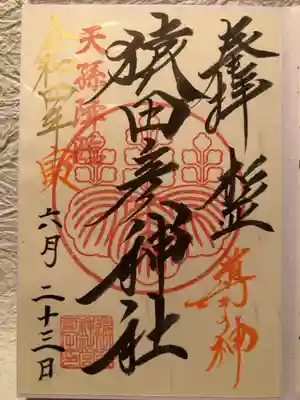 奉拝
導きの神
猿田彦神社
天孫降臨
令和四年 寅
六月二十三日